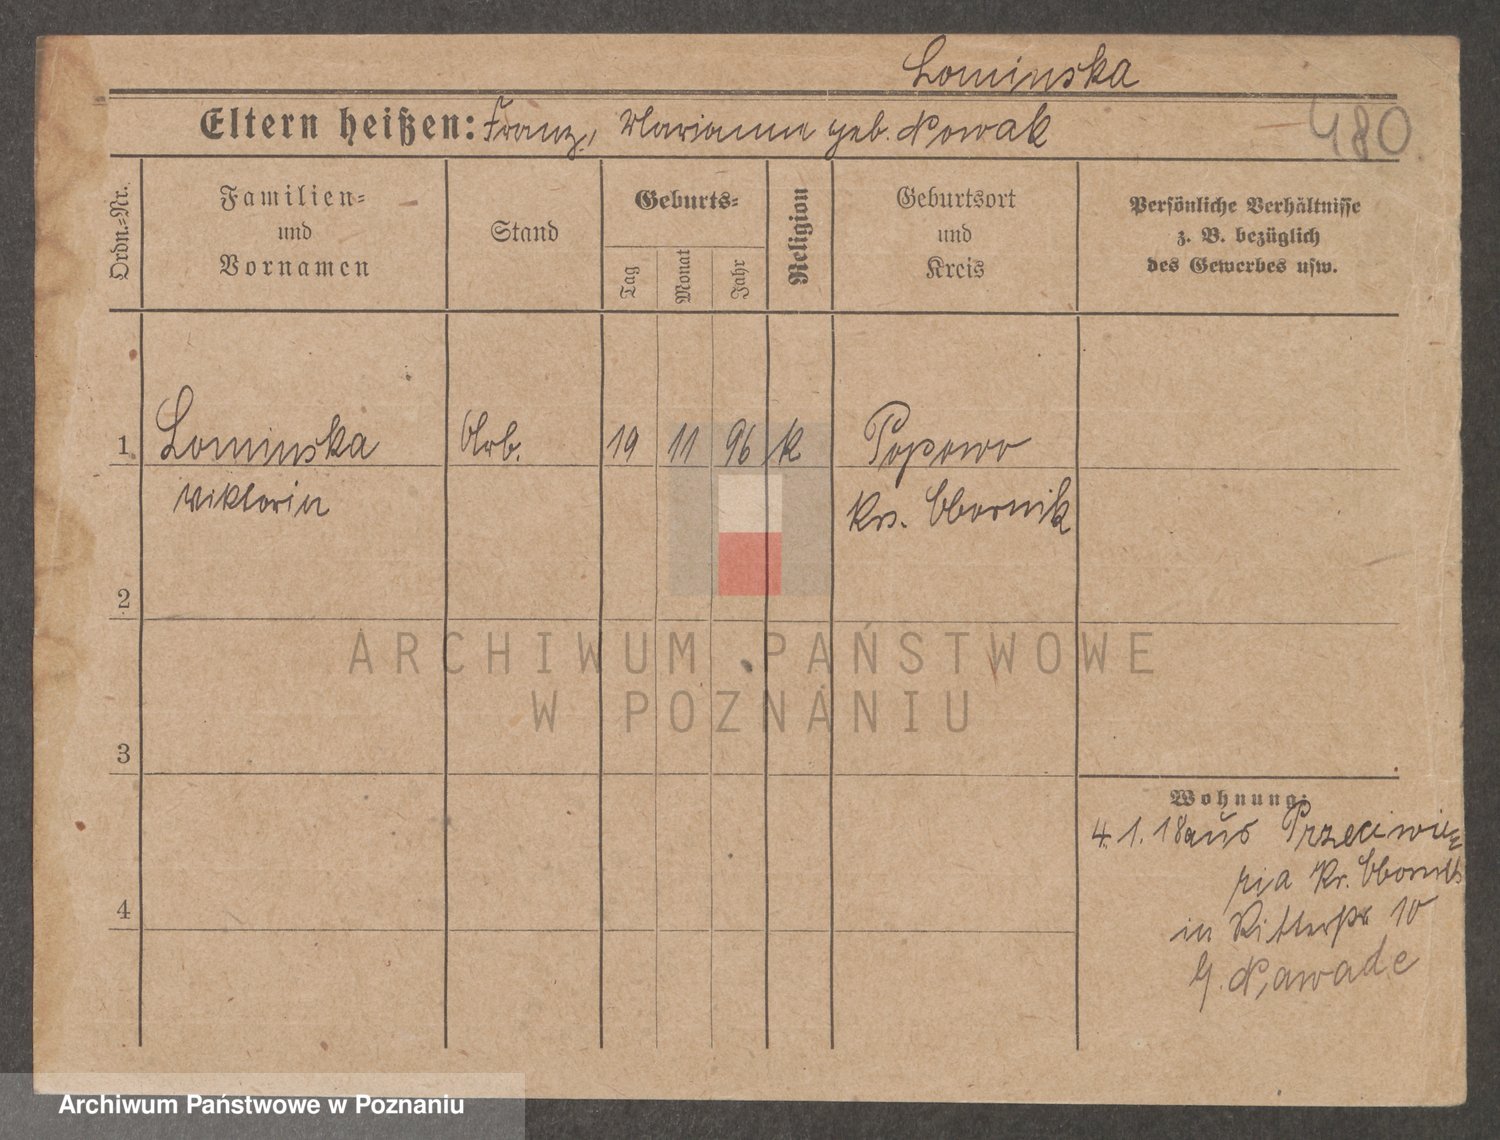 Lominska
Eltern heißen: Franz, Marianna geb. Nowak
480
Ordn.=Nr.
Familien=
und
Vornamen
Stand
Geburts=
Tag
Monat
Jahr
Religion
Geburtsort
und
Kreis
Persönliche Verhältnisse
z. B. bezüglich
des Gewerbes usw.
1 Lominska Arb. 19 11 96 k Popowo
Viktoria Krs. Obornik
2
ARCHIWUM PAŃSTWOWE
W POZNANIU
3
Wohnung:
4.1.18 aus Przeciwni
Kr. Obornik
4
in Ritterstr 10
Archiwum Państwowe w Poznaniu